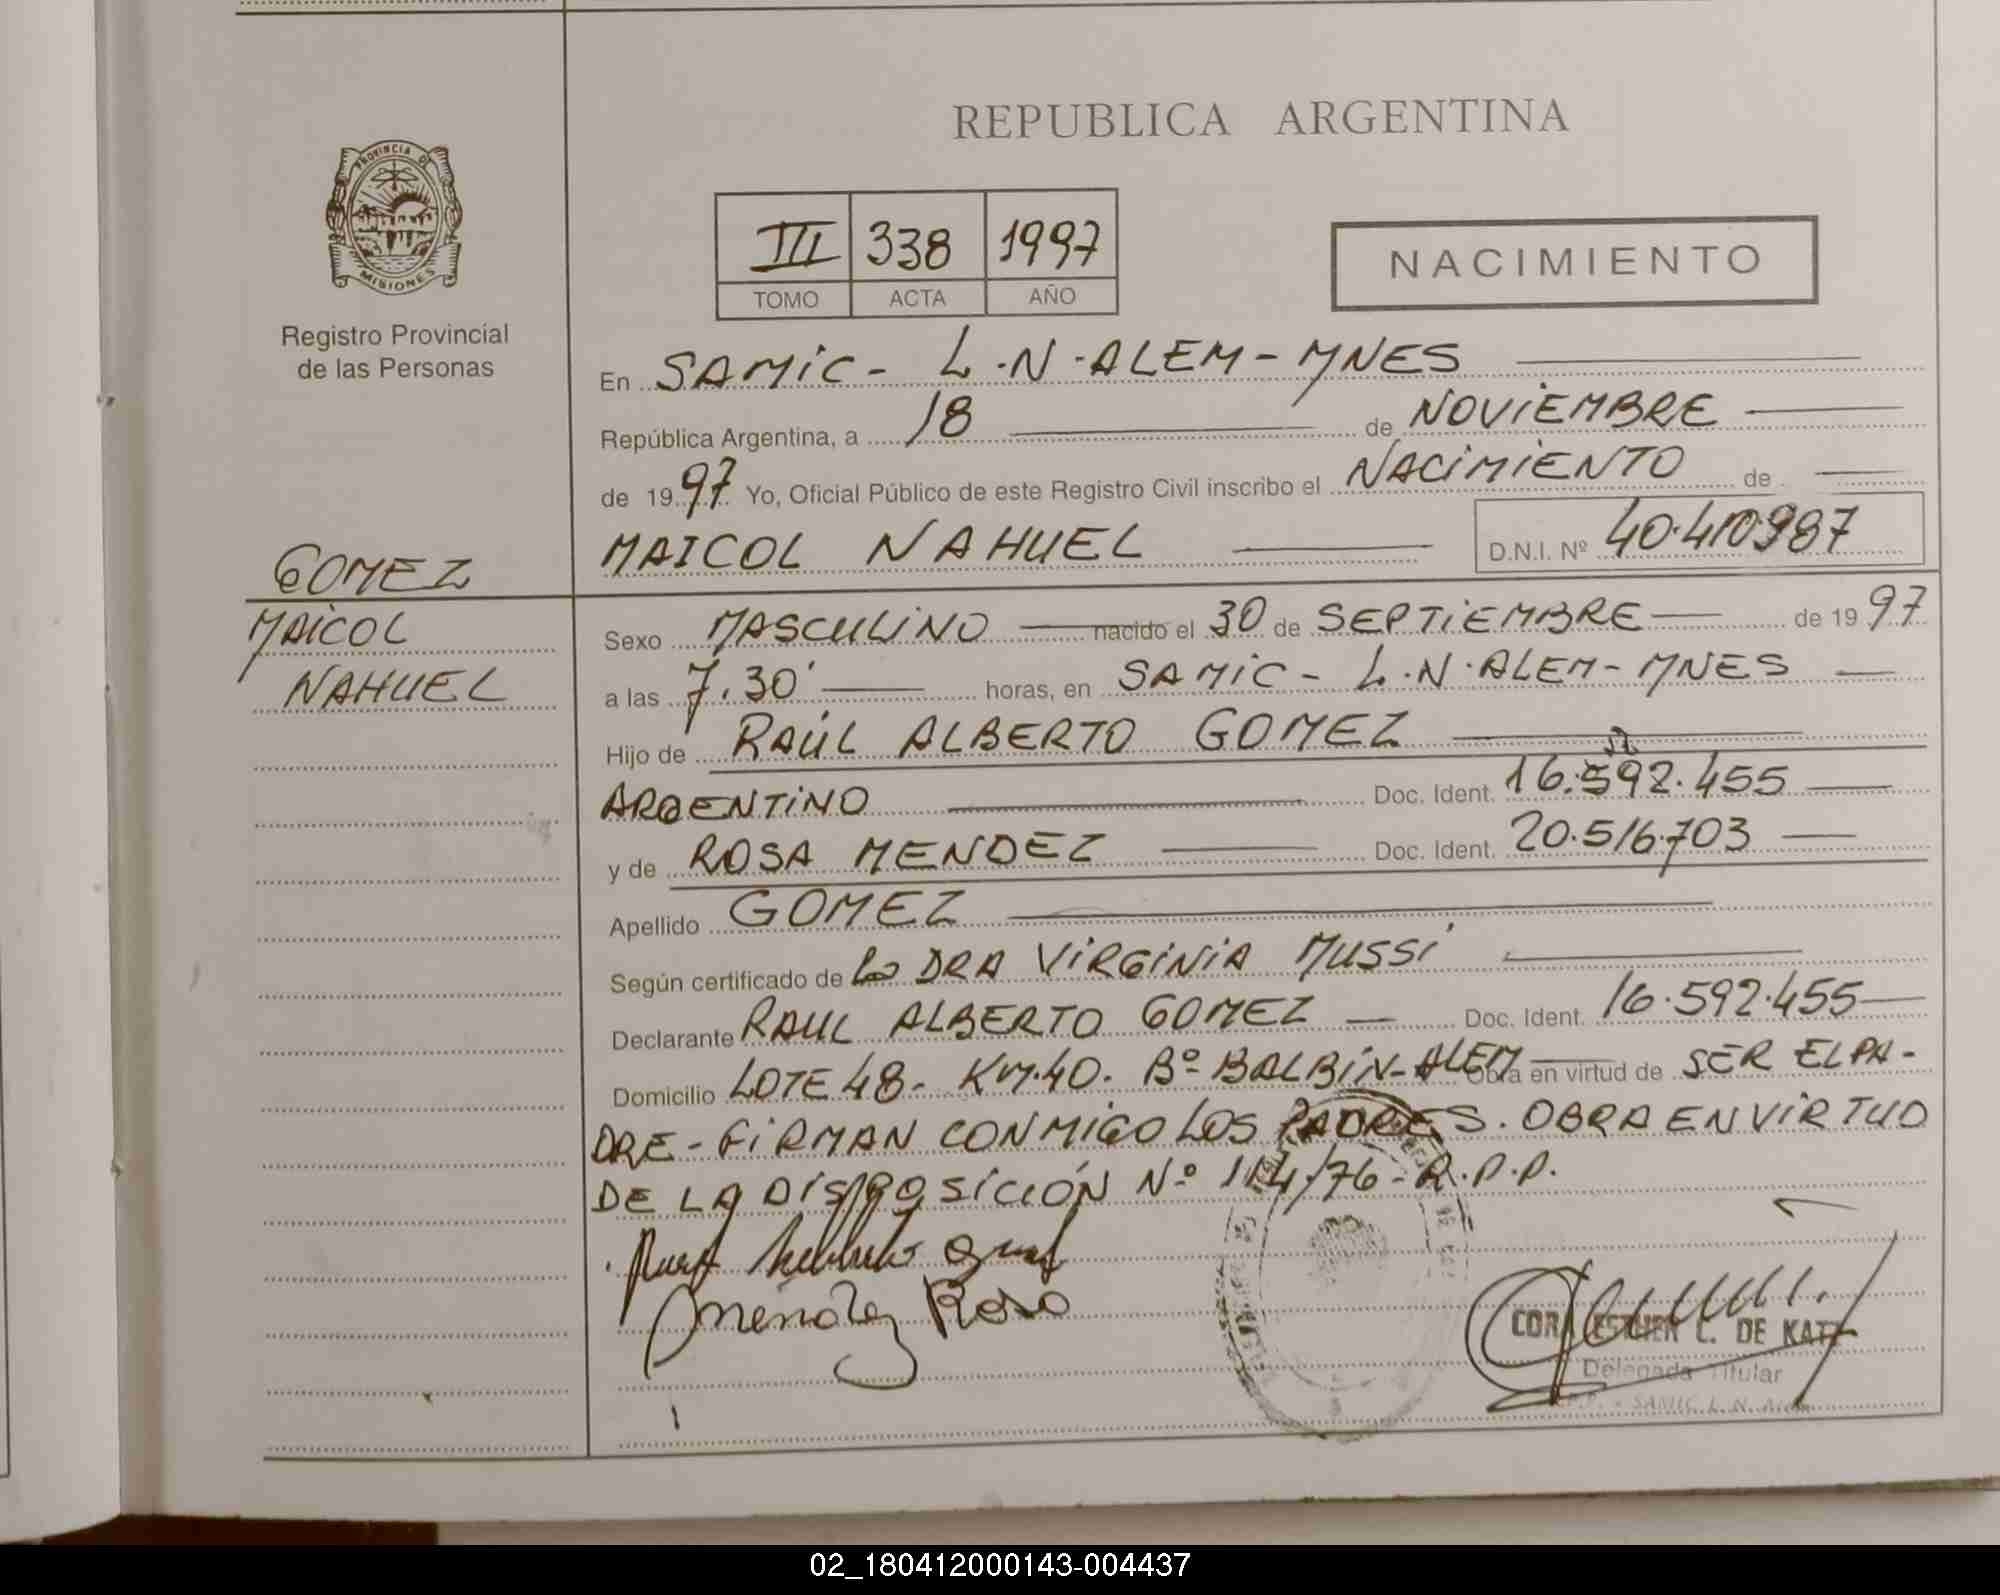 PROVINCIA DE
MISIONES
Registro Provincial
de las Personas
GOMEZ
MAICOL
NAHUEL
REPUBLICA ARGENTINA
III 338 1997
TOMO ACTA AÑO
NACIMIENTO
En SAMIC - L.N. ALEM - MNES
República Argentina, a 18 de NOVIEMBRE
de 1997 Yo, Oficial Público de este Registro Civil inscribo el NACIMIENTO de
MAICOL NAHUEL D.N.I. Nº 40.410987
Sexo MASCULINO nacido el 30 de SEPTIEMBRE de 1997
a las 7.30' horas, en SAMIC - L.N. ALEM - MNES
Hijo de RAÚL ALBERTO GOMEZ
ARGENTINO Doc. Ident. 16.592.455
y de ROSA MENDEZ Doc. Ident. 20.516.703
Apellido GOMEZ
Según certificado de la DRA VIRGINIA MUSSI
Declarante RAUL ALBERTO GOMEZ Doc. Ident. 16.592.455
Domicilio LOTE 48 - KM.40. Bº BALBIN - ALEM Obra en virtud de SER EL PA-
DRE - FIRMAN CONMIGO LOS PADRES. OBRA EN VIRTUD
DE LA DISPOSICIÓN Nº 114/76 - R.P.P.
Mendez Rosa
CORA ESTHER C. DE KATZ
Delegada Titular
R.P.P. - SAMIC L. N. Alem
02_180412000143-004437